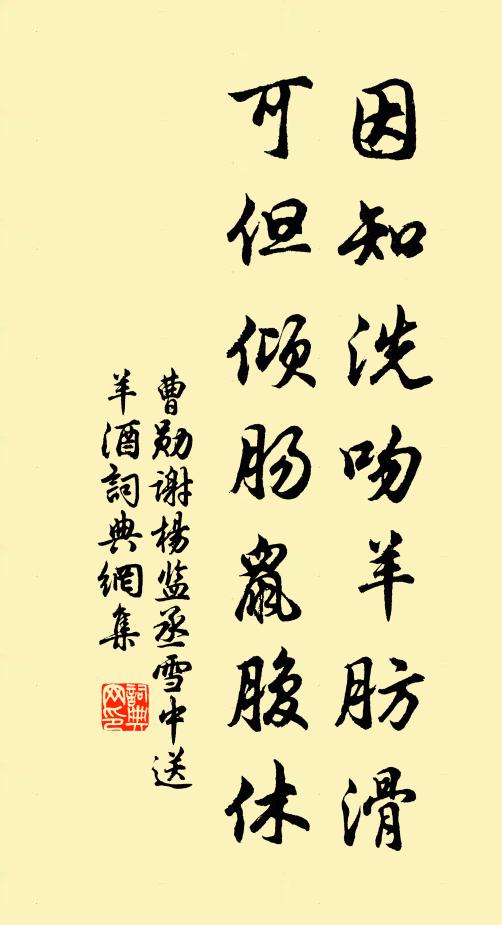 因知洗吻羊肪滑
可但倾肠鼠腹休
曹勋谢杨监丞雪中送
羊酒詞典網集
詞典网印